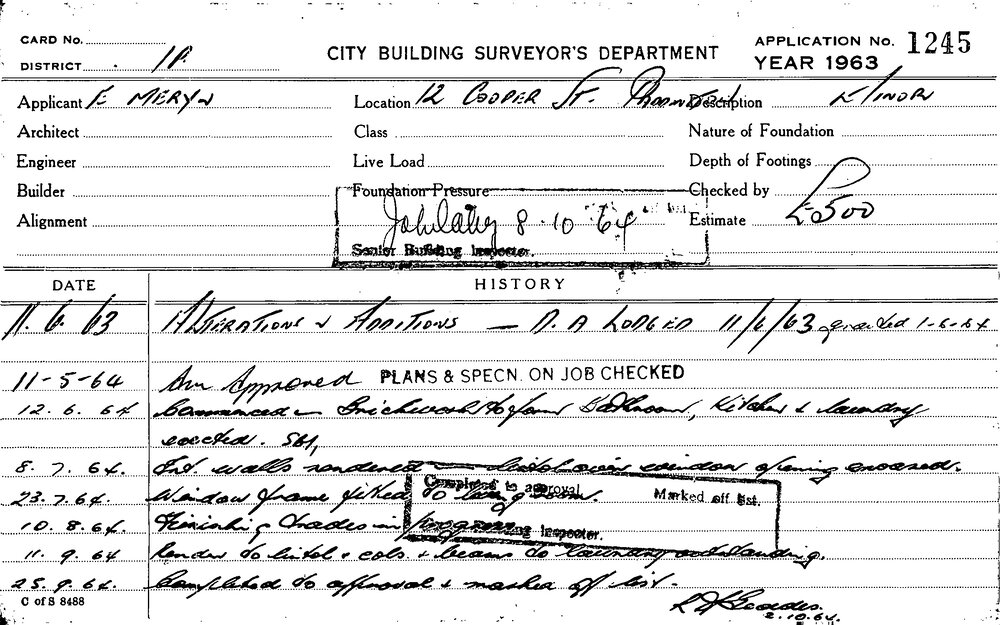 CARD No.
DISTRICT 1P.
CITY BUILDING SURVEYOR'S DEPARTMENT
APPLICATION No. 1245
YEAR 1963
Applicant E MERYN Location 12 COOPER ST. Description
Architect Class Nature of Foundation
Engineer Live Load Depth of Footings
Builder Foundation Pressure Checked by
Alignment 8.10.64 Estimate £500
Senior Building Inspector.
DATE HISTORY
11.6.63 ALTERATIONS & ADDITIONS — D.A LODGED 11/6/63 granted 1-6-64
11-5-64 Approved PLANS & SPECN. ON JOB CHECKED
12.6.64 Commenced — Brickwork to form Bathroom, Kitchen & laundry
erected.
8.7.64. Int. walls rendered — lintol over window opening
23.7.64. Window frame fitted to living room.
Completed to approval Marked off list.
10.8.64. Finishing trades in progress
Building Inspector.
11.9.64 Render to lintol & cols. & beams to laundry outstanding.
25.9.64. Completed to approval & marked off list.
C of S 8488
2.10.64.